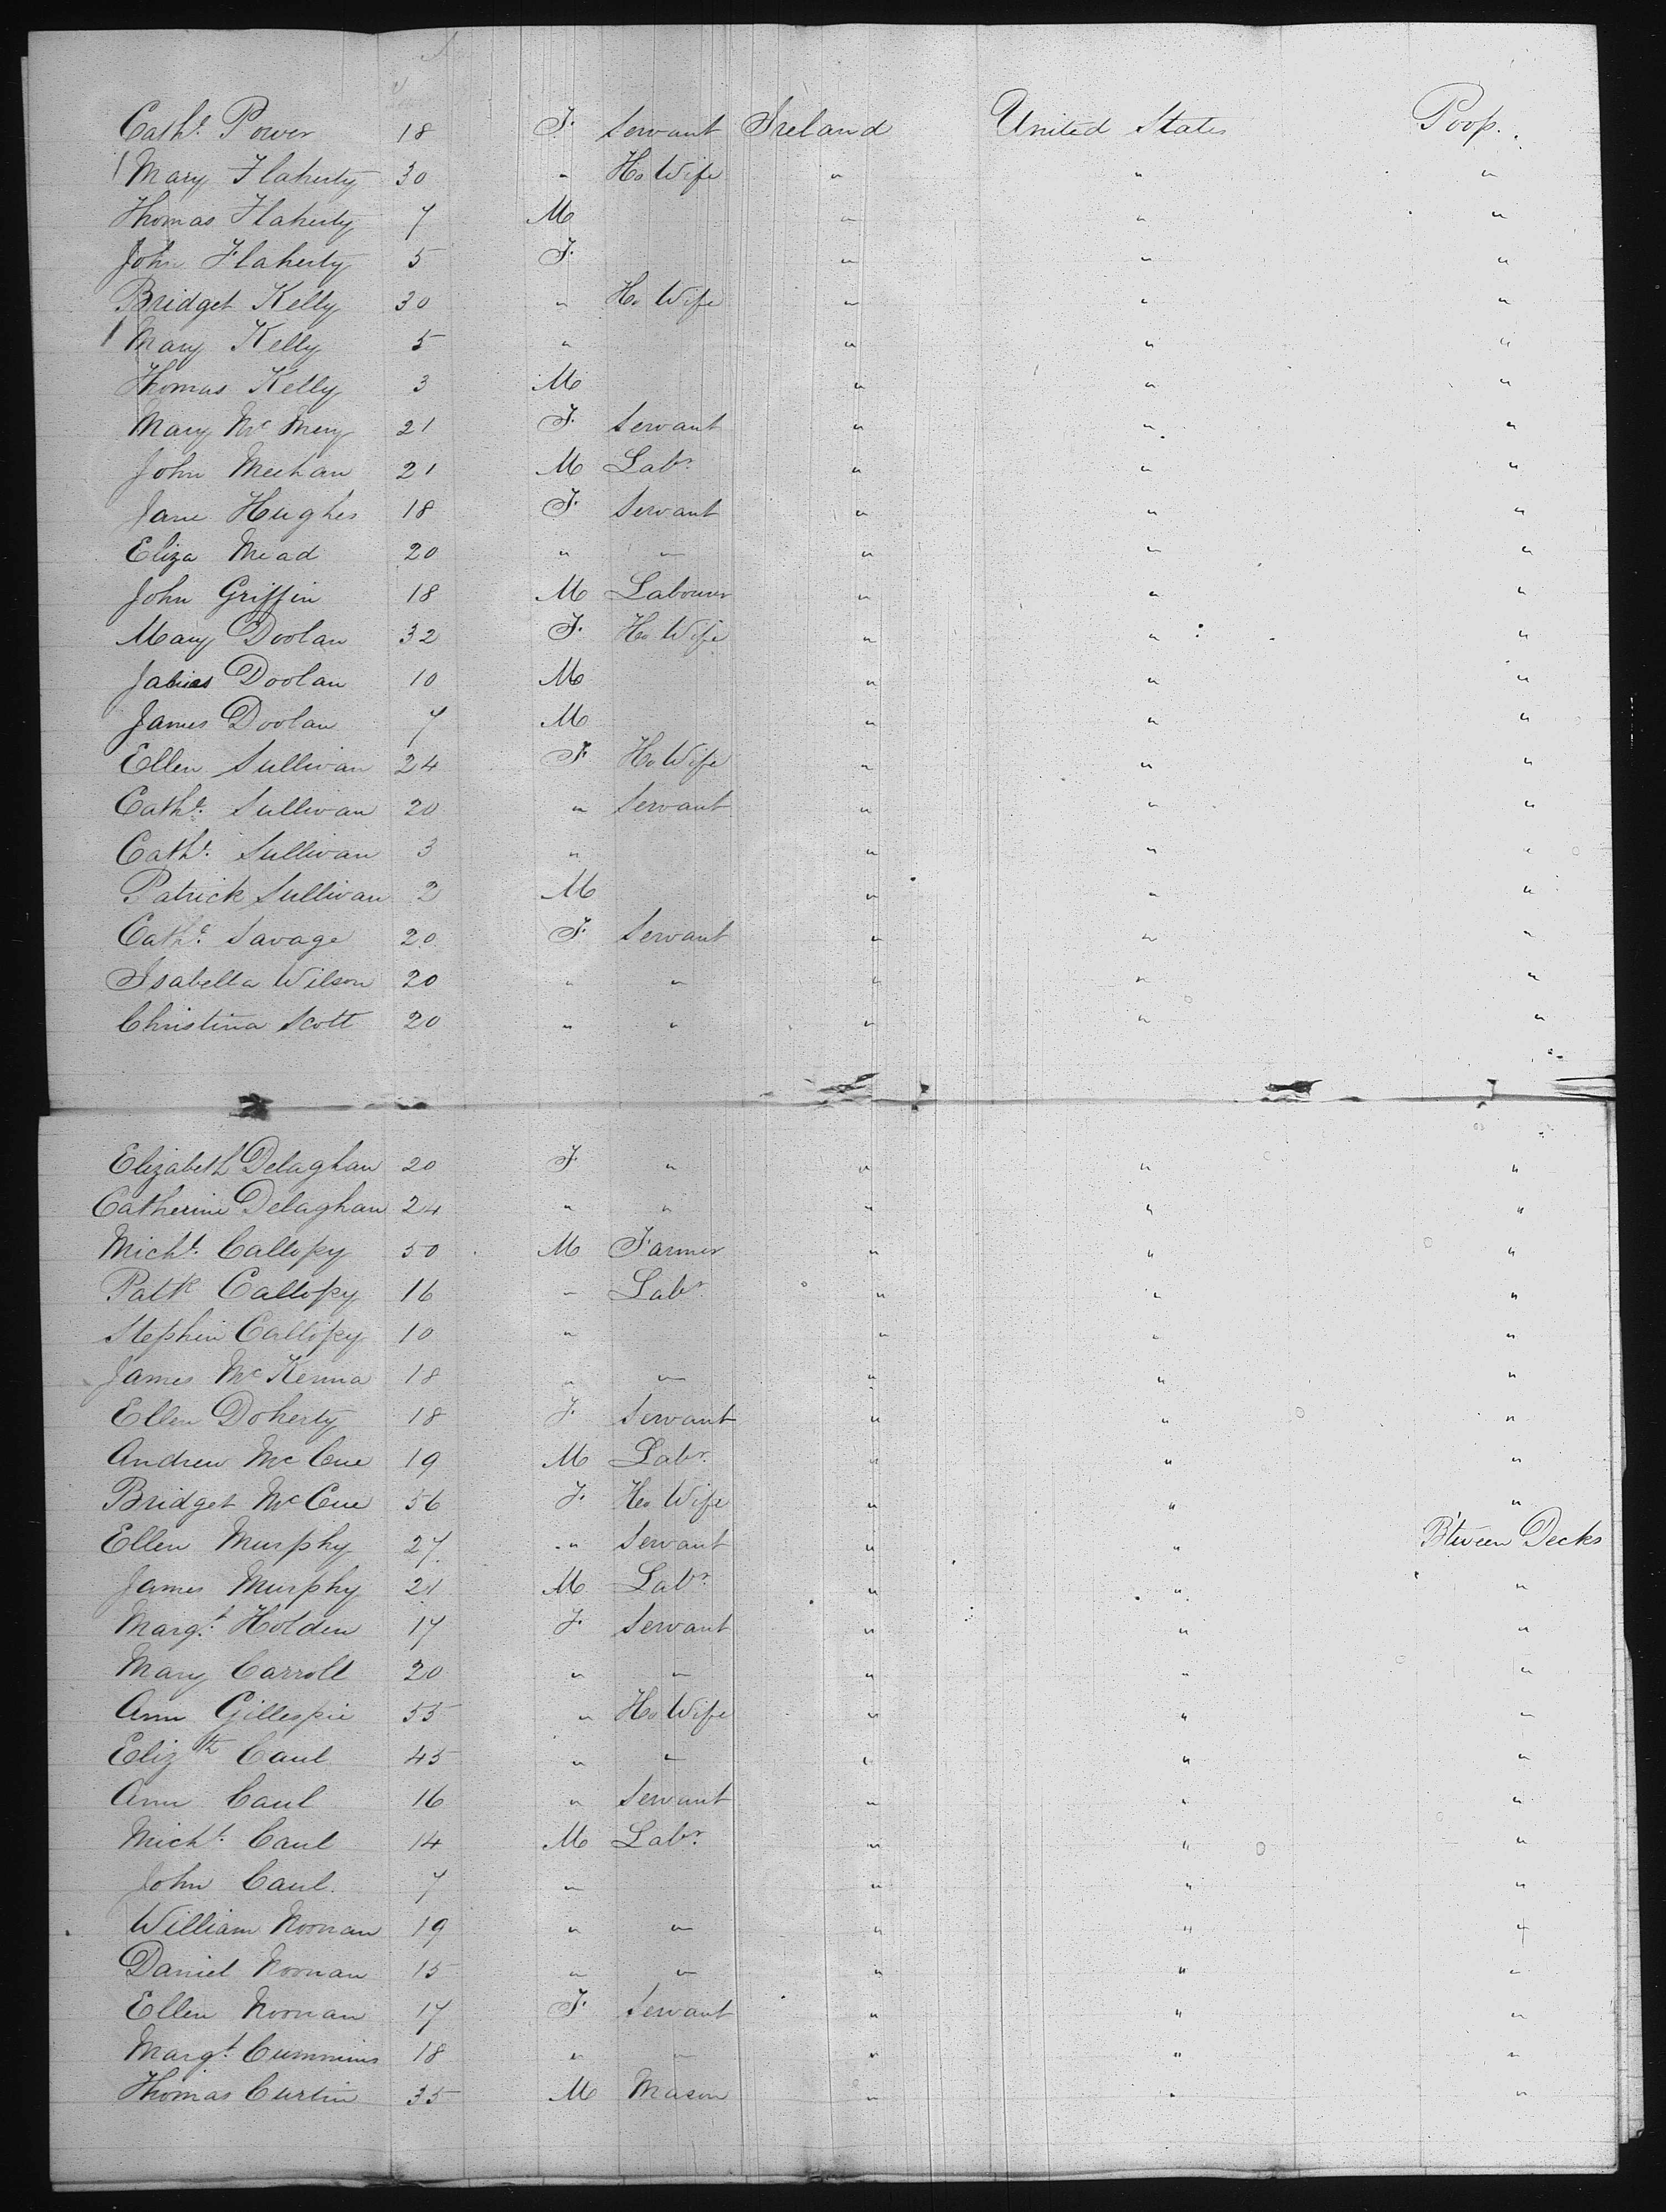 Cathe. Power 18 F. Servant Ireland United States Poop.
Mary Flaherty 30 " Ho Wife " " "
Thomas Flaherty 7 M " " "
John Flaherty 5 F. " " "
Bridget Kelly 30 " Ho Wife " " "
Mary Kelly 5 " " " "
Thomas Kelly 3 M " " "
Mary Mc 21 F. Servant " " "
John Meehan 21 M Labr. " " "
Jane Hughes 18 F. Servant " " "
Eliza Mead 20 " " " " "
John Griffin 18 M Labourer " " "
Mary Doolan 32 F. Ho Wife " " "
Doolan 10 M " " "
James Doolan 7 M " " "
Ellen Sullivan 24 F Ho Wife " " "
Cathe. Sullivan 20 " Servant " " "
Cathe. Sullivan 3 " " " "
Patrick Sullivan 2 M " " "
Cathe. Savage 20 F. Servant " " "
Isabella Wilson 20 " " " " "
Christina Scott 20 " " " " "
Elizabeth Delaghan 20 F. " " " "
Catherine Delaghan 24 " " " " "
Michl. Callopy 50 M Farmer " " "
Patk Callopy 16 " Labr. " " "
Stephen Callopy 10 " " " "
James McKenna 18 " " " " "
Ellen Doherty 18 F. Servant " " "
Andrew McCue 19 M Labr. " " "
Bridget McCue 56 F. Ho Wife " " "
Ellen Murphy 27 " Servant " " B'tween Decks
James Murphy 21 M Labr. " " "
Margt. Holden 17 F. Servant " " "
Mary Carroll 20 " " " " "
Ann Gillespie 55 " Ho Wife " " "
Elizth Caul 45 " " " " "
Ann Caul 16 " Servant " " "
Michl. Caul 14 M Labr. " " "
John Caul 7 " " " "
William Noonan 19 " " " " "
Daniel Noonan 15 " " " " "
Ellen Noonan 17 F. Servant " " "
Margt. Cummins 18 " " " " "
Thomas Curtin 35 M Mason " " "